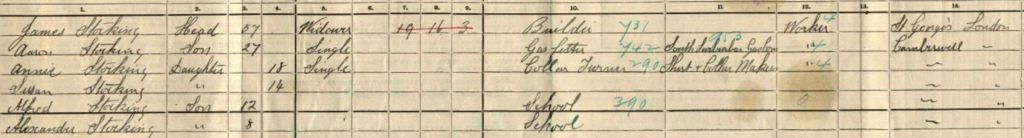 1. 2. 3. 4. 5. 6. 7. 8. 9. 10. 11. 12. 13. 14.
James Stocking Head 57 Widower 19 16 3 Builder 731 Worker 4 St George's London
Aaron Stocking Son 27 Single Gas fitter 742 South Suburban Gas Con 958 " 4 Camberwell "
Annie Stocking Daughter 18 Single Collar Turner 290 Shirt & Collar Makers " 4 " "
Susan Stocking " 14 " "
Alfred Stocking Son 12 School 390 0 " "
Alexander Stocking " 8 School " "